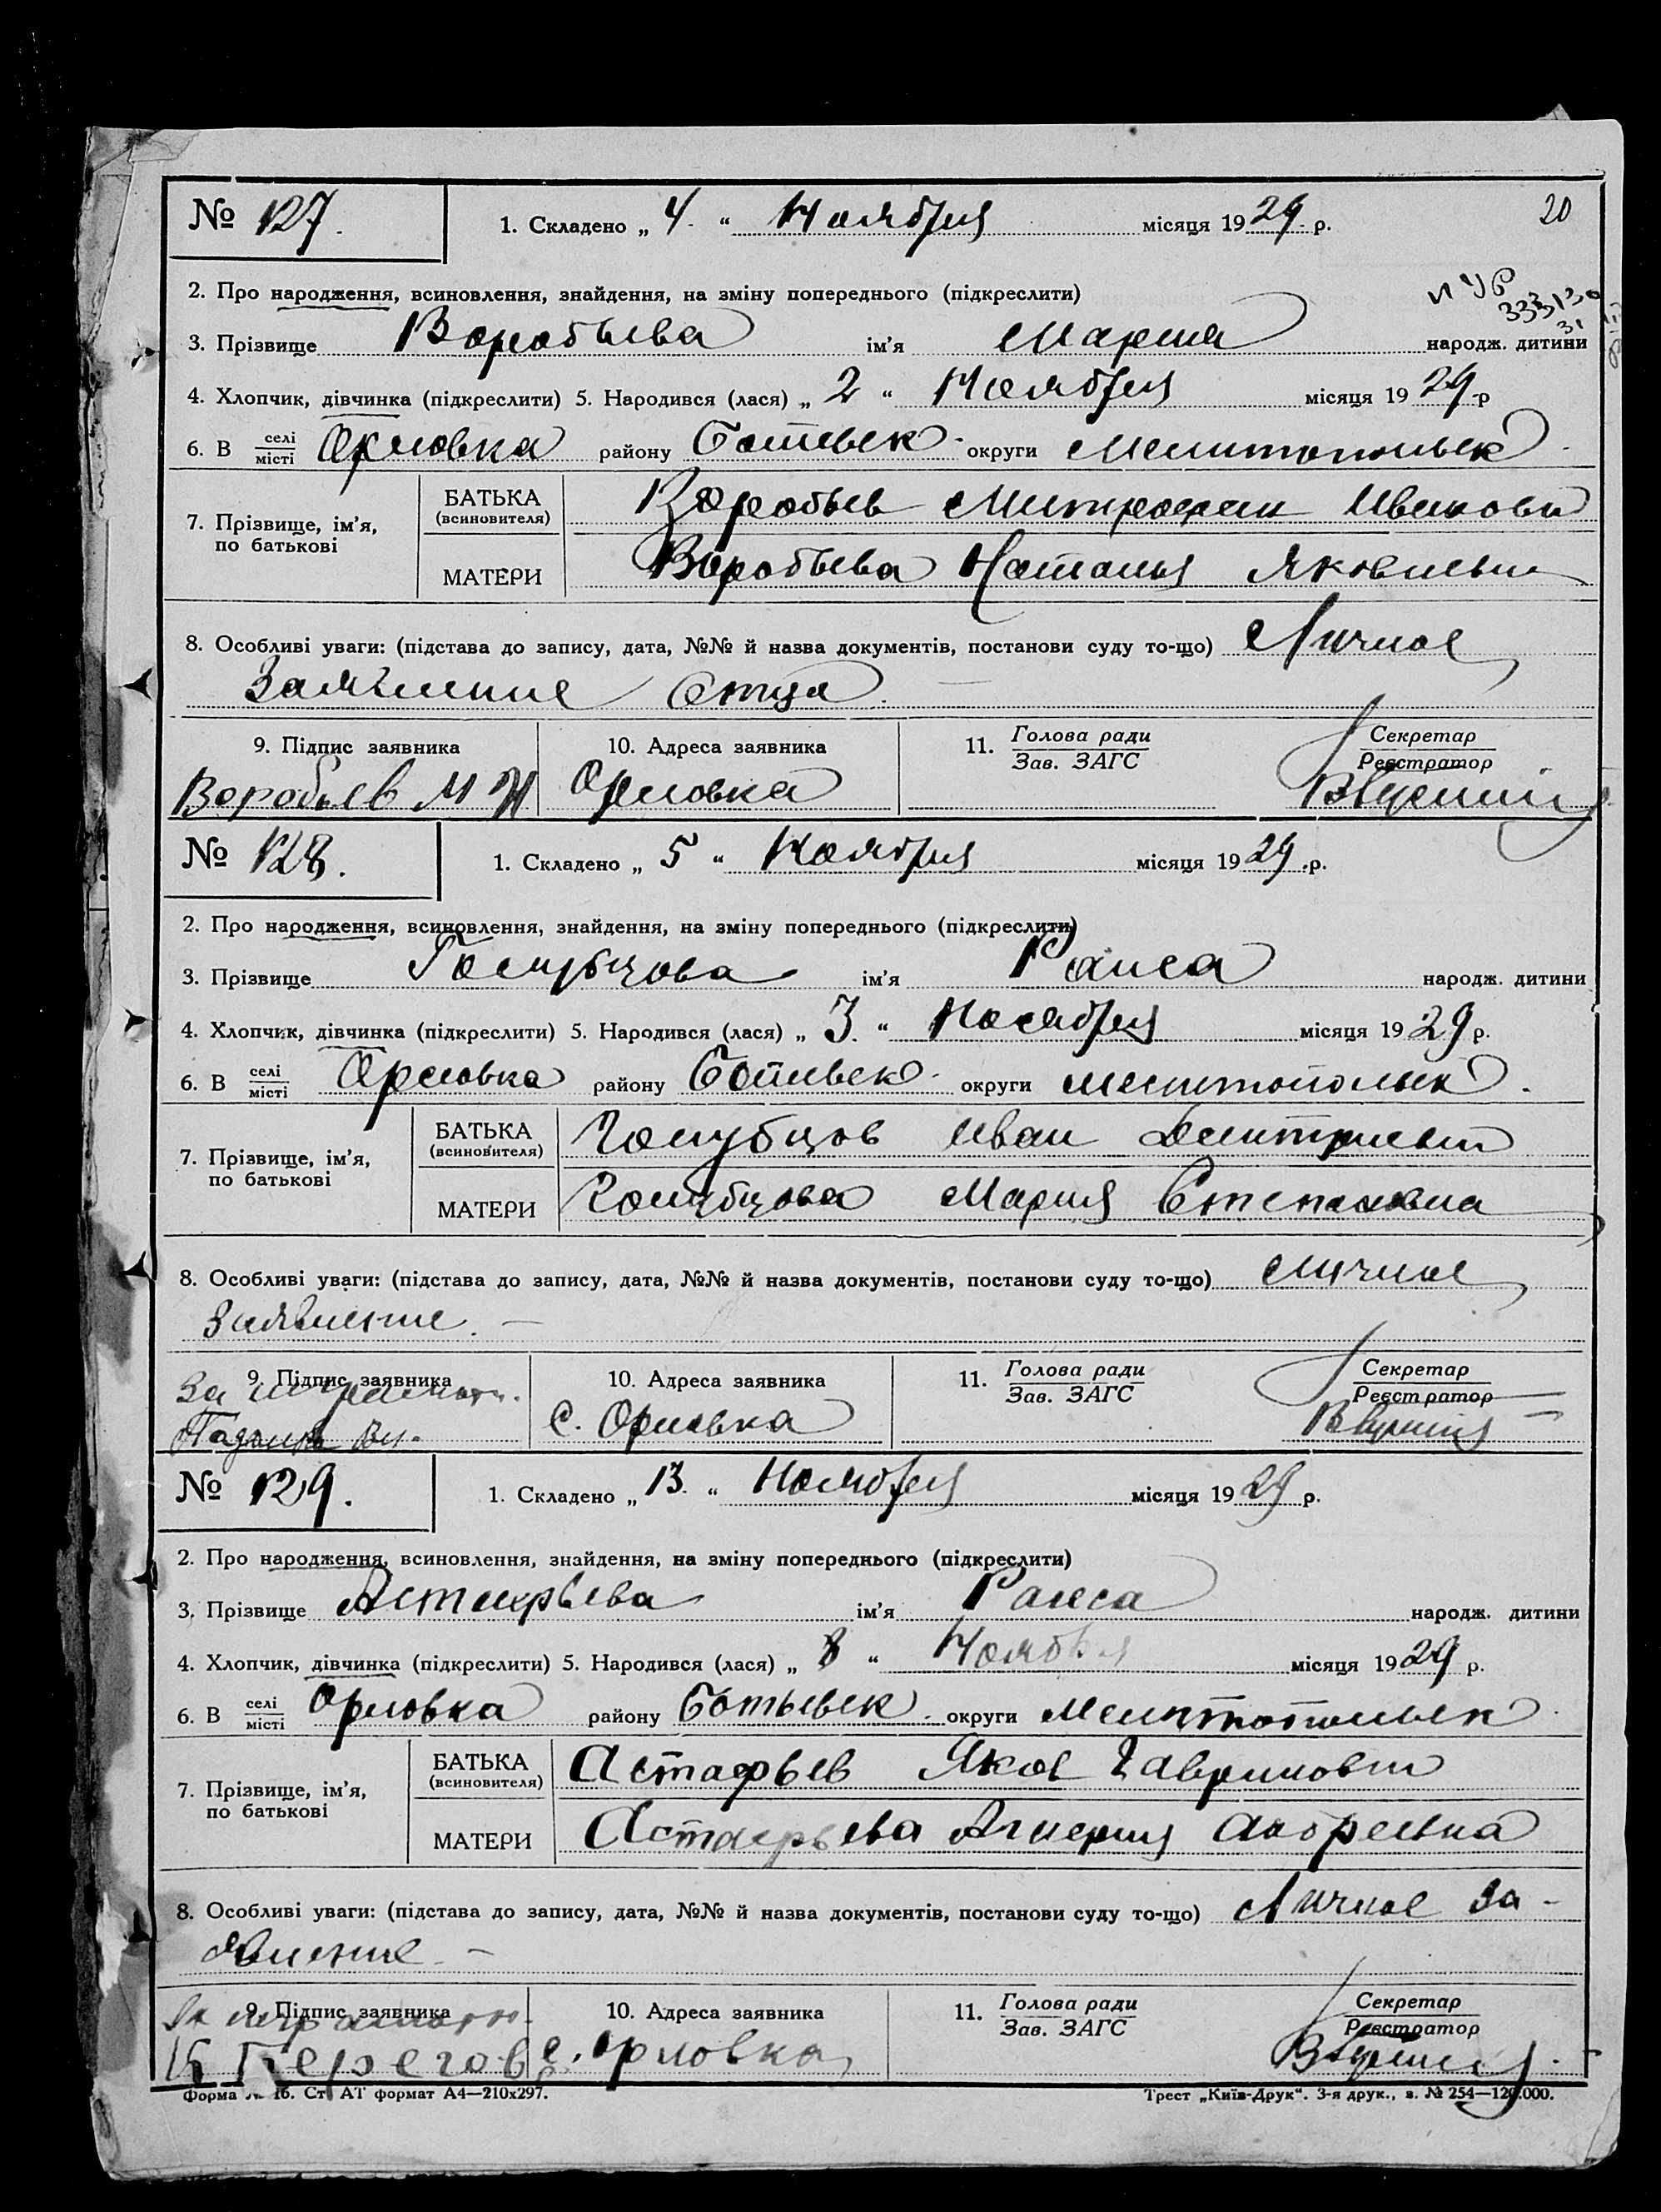 № 127. 1. Складено „ 4. “ Ноября місяця 1929. р. 20
2. Про народження, всиновлення, знайдення, на зміну попереднього (підкреслити)
3. Прізвище Воробьева ім’я Мария народж. дитини
4. Хлопчик, дівчинка (підкреслити) 5. Народився (лася) „ 2 “ Ноября місяця 1929 р
6. В селі місті Орловка району Ботьевск. округи Мелитопольск.
7. Прізвище, ім’я, по батькові
БАТЬКА (всиновителя) Воробьев Митрофан Иванович
МАТЕРИ Воробьева Наталья Яковлевна
8. Особливі уваги: (підстава до запису, дата, №№ й назва документів, постанови суду то-що) Личное
Заявление Отца.
9. Підпис заявника 10. Адреса заявника 11. Голова ради Секретар
Зав. ЗАГС Реєстратор
Воробьев М И Орловка
№ 128. 1. Складено „ 5 “ Ноября місяця 1929 р.
2. Про народження, всиновлення, знайдення, на зміну попереднього (підкреслити)
3. Прізвище Голубцова ім’я Раиса народж. дитини
4. Хлопчик, дівчинка (підкреслити) 5. Народився (лася) „ 3. “ Ноября місяця 1929 р.
6. В селі місті Орловка району Ботиевск. округи Мелитопольск.
7. Прізвище, ім’я, по батькові
БАТЬКА (всиновителя) Голубцов Иван Дмитриевич
МАТЕРИ Голубцова Мария Степановна
8. Особливі уваги: (підстава до запису, дата, №№ й назва документів, постанови суду то-що) Личное
Заявление. —
9. Підпис заявника 10. Адреса заявника 11. Голова ради Секретар
Зав. ЗАГС Реєстратор
За неграмотн.
с. Орловка
№ 129. 1. Складено „ 13. “ Ноября місяця 1929 р.
2. Про народження, всиновлення, знайдення, на зміну попереднього (підкреслити)
3. Прізвище Астафьева ім’я Раиса народж. дитини
4. Хлопчик, дівчинка (підкреслити) 5. Народився (лася) „ 8 “ Ноября місяця 1929 р.
6. В селі місті Орловка району Ботьевск. округи Мелитопольск.
7. Прізвище, ім’я, по батькові
БАТЬКА (всиновителя) Астафьев Яков Гаврилович
МАТЕРИ Астафьева Андреевна
8. Особливі уваги: (підстава до запису, дата, №№ й назва документів, постанови суду то-що) Личное За-
явление —
9. Підпис заявника 10. Адреса заявника 11. Голова ради Секретар
Зав. ЗАГС Реєстратор
За неграмотн.
с. Орловка
Форма № 1б. Ст. АТ формат А4—210х297. Трест „Київ-Друк“. 3-я друк., з. № 254—120.000.